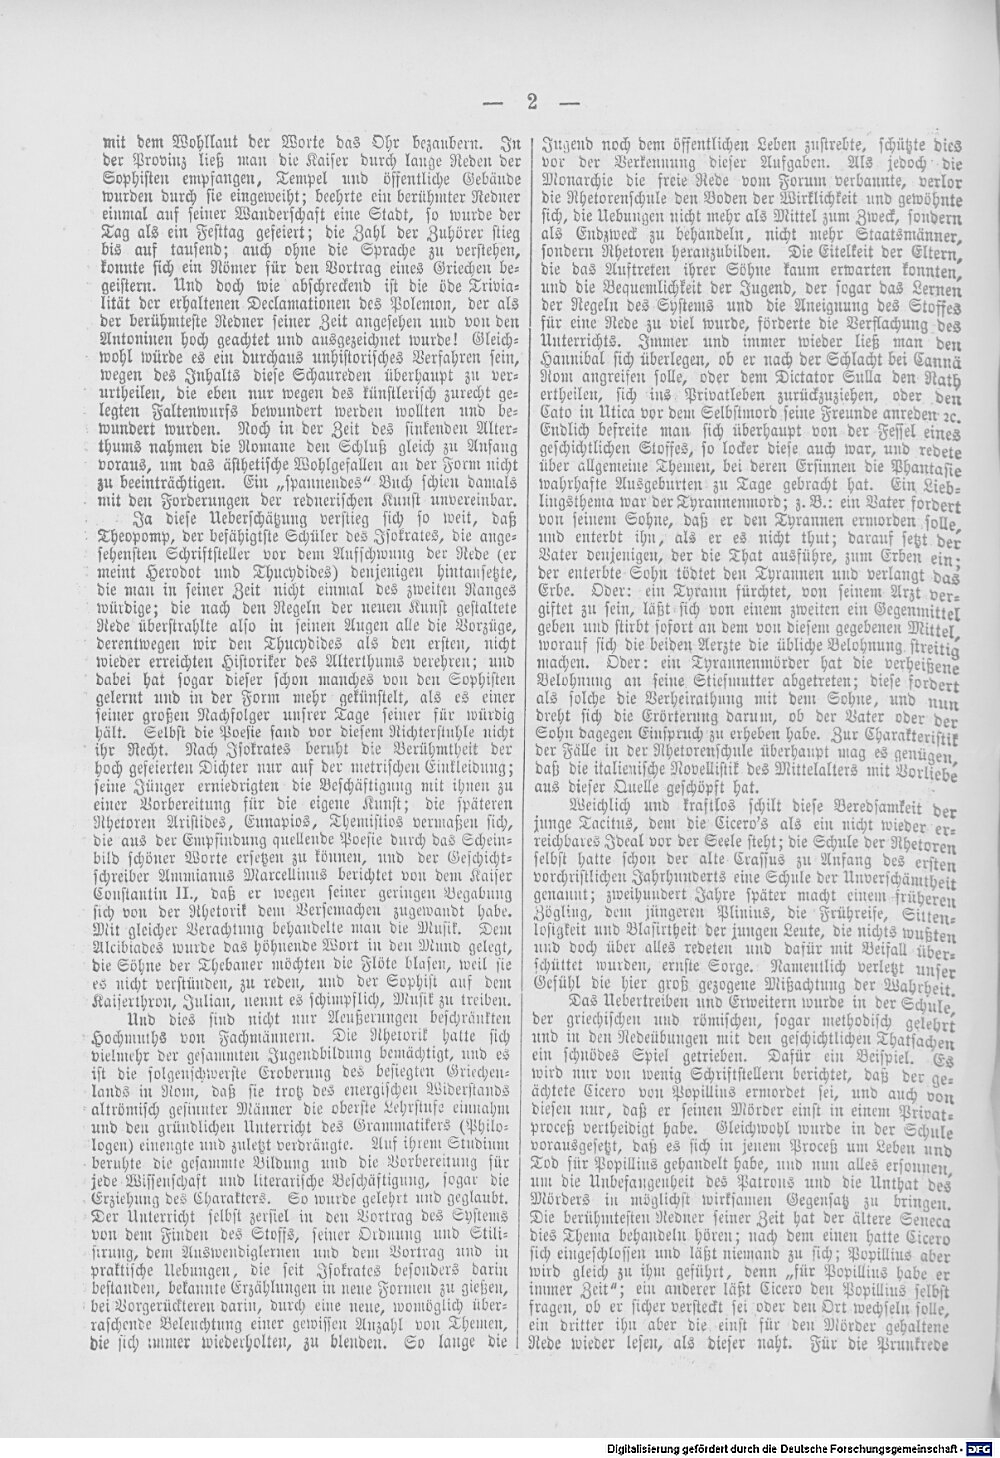 — 2 —
mit dem Wohllaut der Worte das Ohr bezaubern. In
der Provinz ließ man die Kaiser durch lange Reden der
Sophisten empfangen, Tempel und öffentliche Gebäude
wurden durch sie eingeweiht; beehrte ein berühmter Redner
einmal auf seiner Wanderschaft eine Stadt, so wurde der
Tag als ein Festtag gefeiert; die Zahl der Zuhörer stieg
bis auf tausend; auch ohne die Sprache zu verstehen,
konnte sich ein Römer für den Vortrag eines Griechen be-
geistern. Und doch wie abschreckend ist die öde Trivia-
lität der erhaltenen Declamationen des Polemon, der als
der berühmteste Redner seiner Zeit angesehen und von den
Antoninen hoch geachtet und ausgezeichnet wurde! Gleich-
wohl würde es ein durchaus unhistorisches Verfahren sein,
wegen des Inhalts diese Schaureden überhaupt zu ver-
urtheilen, die eben nur wegen des künstlerisch zurecht ge-
legten Faltenwurfs bewundert werden wollten und be-
wundert wurden. Noch in der Zeit des sinkenden Alter-
thums nahmen die Romane den Schluß gleich zu Anfang
voraus, um das ästhetische Wohlgefallen an der Form nicht
zu beeinträchtigen. Ein „spannendes“ Buch schien damals
mit den Forderungen der rednerischen Kunst unvereinbar.
Ja diese Ueberschätzung verstieg sich so weit, daß
Theopomp, der befähigtste Schüler des Isokrates, die ange-
sehensten Schriftsteller vor dem Aufschwung der Rede (er
meint Herodot und Thucydides) denjenigen hintansetzte,
die man in seiner Zeit nicht einmal des zweiten Ranges
würdige; die nach den Regeln der neuen Kunst gestaltete
Rede überstrahlte also in seinen Augen alle die Vorzüge,
derentwegen wir den Thucydides als den ersten, nicht
wieder erreichten Historiker des Alterthums verehren; und
dabei hat sogar dieser schon manches von den Sophisten
gelernt und in der Form mehr gekünstelt, als es einer
seiner großen Nachfolger unsrer Tage seiner für würdig
hält. Selbst die Poesie fand vor diesem Richterstuhle nicht
ihr Recht. Nach Isokrates beruht die Berühmtheit der
hoch gefeierten Dichter nur auf der metrischen Einkleidung;
seine Jünger erniedrigten die Beschäftigung mit ihnen zu
einer Vorbereitung für die eigene Kunst; die späteren
Rhetoren Aristides, Eunapios, Themistios vermaßen sich,
die aus der Empfindung quellende Poesie durch das Schein-
bild schöner Worte ersetzen zu können, und der Geschicht-
schreiber Ammianus Marcellinus berichtet von dem Kaiser
Constantin II., daß er wegen seiner geringen Begabung
sich von der Rhetorik dem Versemachen zugewandt habe.
Mit gleicher Verachtung behandelte man die Musik. Dem
Alcibiades wurde das höhnende Wort in den Mund gelegt,
die Söhne der Thebaner möchten die Flöte blasen, weil sie
es nicht verstünden, zu reden, und der Sophist auf dem
Kaiserthron, Julian, nennt es schimpflich, Musik zu treiben.
Und dies sind nicht nur Aeußerungen beschränkten
Hochmuths von Fachmännern. Die Rhetorik hatte sich
vielmehr der gesammten Jugendbildung bemächtigt, und es
ist die folgenschwerste Eroberung des besiegten Griechen-
lands in Rom, daß sie trotz des energischen Widerstands
altrömisch gesinnter Männer die oberste Lehrstufe einnahm
und den gründlichen Unterricht des Grammatikers (Philo-
logen) einengte und zuletzt verdrängte. Auf ihrem Studium
beruhte die gesammte Bildung und die Vorbereitung für
jede Wissenschaft und literarische Beschäftigung, sogar die
Erziehung des Charakters. So wurde gelehrt und geglaubt.
Der Unterricht selbst zerfiel in den Vortrag des Systems
von dem Finden des Stoffs, seiner Ordnung und Stili-
sirung, dem Auswendiglernen und dem Vortrag und in
praktische Uebungen, die seit Isokrates besonders darin
bestanden, bekannte Erzählungen in neue Formen zu gießen,
bei Vorgerückteren darin, durch eine neue, womöglich über-
raschende Beleuchtung einer gewissen Anzahl von Themen,
die sich immer wiederholten, zu blenden. So lange die
Jugend noch dem öffentlichen Leben zustrebte, schützte dies
vor der Verkennung dieser Aufgaben. Als jedoch die
Monarchie die freie Rede vom Forum verbannte, verlor
die Rhetorenschule den Boden der Wirklichkeit und gewöhnte
sich, die Uebungen nicht mehr als Mittel zum Zweck, sondern
als Endzweck zu behandeln, nicht mehr Staatsmänner,
sondern Rhetoren heranzubilden. Die Eitelkeit der Eltern,
die das Auftreten ihrer Söhne kaum erwarten konnten,
und die Bequemlichkeit der Jugend, der sogar das Lernen
der Regeln des Systems und die Aneignung des Stoffes
für eine Rede zu viel wurde, förderte die Verflachung des
Unterrichts. Immer und immer wieder ließ man den
Hannibal sich überlegen, ob er nach der Schlacht bei Cannä
Rom angreifen solle, oder dem Dictator Sulla den Rath
ertheilen, sich ins Privatleben zurückzuziehen, oder den
Cato in Utica vor dem Selbstmord seine Freunde anreden ꝛc.
Endlich befreite man sich überhaupt von der Fessel eines
geschichtlichen Stoffes, so locker diese auch war, und redete
über allgemeine Themen, bei deren Ersinnen die Phantasie
wahrhafte Ausgeburten zu Tage gebracht hat. Ein Lieb-
lingsthema war der Tyrannenmord; z. B.: ein Vater fordert
von seinem Sohne, daß er den Tyrannen ermorden solle,
und enterbt ihn, als er es nicht thut; darauf setzt der
Vater denjenigen, der die That ausführe, zum Erben ein;
der enterbte Sohn tödtet den Tyrannen und verlangt das
Erbe. Oder: ein Tyrann fürchtet, von seinem Arzt ver-
giftet zu sein, läßt sich von einem zweiten ein Gegenmittel
geben und stirbt sofort an dem von diesem gegebenen Mittel,
worauf sich die beiden Aerzte die übliche Belohnung streitig
machen. Oder: ein Tyrannenmörder hat die verheißene
Belohnung an seine Stiefmutter abgetreten; diese fordert
als solche die Verheirathung mit dem Sohne, und nun
dreht sich die Erörterung darum, ob der Vater oder der
Sohn dagegen Einspruch zu erheben habe. Zur Charakteristik
der Fälle in der Rhetorenschule überhaupt mag es genügen,
daß die italienische Novellistik des Mittelalters mit Vorliebe
aus dieser Quelle geschöpft hat.
Weichlich und kraftlos schilt diese Beredsamkeit der
junge Tacitus, dem die Cicero's als ein nicht wieder er-
reichbares Ideal vor der Seele steht; die Schule der Rhetoren
selbst hatte schon der alte Crassus zu Anfang des ersten
vorchristlichen Jahrhunderts eine Schule der Unverschämtheit
genannt; zweihundert Jahre später macht einem früheren
Zögling, dem jüngeren Plinius, die Frühreife, Sitten-
losigkeit und Blasirtheit der jungen Leute, die nichts wußten
und doch über alles redeten und dafür mit Beifall über-
schüttet wurden, ernste Sorge. Namentlich verletzt unser
Gefühl die hier groß gezogene Mißachtung der Wahrheit.
Das Uebertreiben und Erweitern wurde in der Schule,
der griechischen und römischen, sogar methodisch gelehrt
und in den Redeübungen mit den geschichtlichen Thatsachen
ein schnödes Spiel getrieben. Dafür ein Beispiel. Es
wird nur von wenig Schriftstellern berichtet, daß der ge-
ächtete Cicero von Popillius ermordet sei, und auch von
diesen nur, daß er seinen Mörder einst in einem Privat-
proceß vertheidigt habe. Gleichwohl wurde in der Schule
vorausgesetzt, daß es sich in jenem Proceß um Leben und
Tod für Popillius gehandelt habe, und nun alles ersonnen,
um die Unbefangenheit des Patrons und die Unthat des
Mörders in möglichst wirksamen Gegensatz zu bringen.
Die berühmtesten Redner seiner Zeit hat der ältere Seneca
dies Thema behandeln hören; nach dem einen hatte Cicero
sich eingeschlossen und läßt niemand zu sich; Popillius aber
wird gleich zu ihm geführt, denn „für Popillius habe er
immer Zeit“; ein anderer läßt Cicero den Popillius selbst
fragen, ob er sicher versteckt sei oder den Ort wechseln solle,
ein dritter ihn aber die einst für den Mörder gehaltene
Rede wieder lesen, als dieser naht. Für die Prunkrede
Digitalisierung gefördert durch die Deutsche Forschungsgemeinschaft - DFG